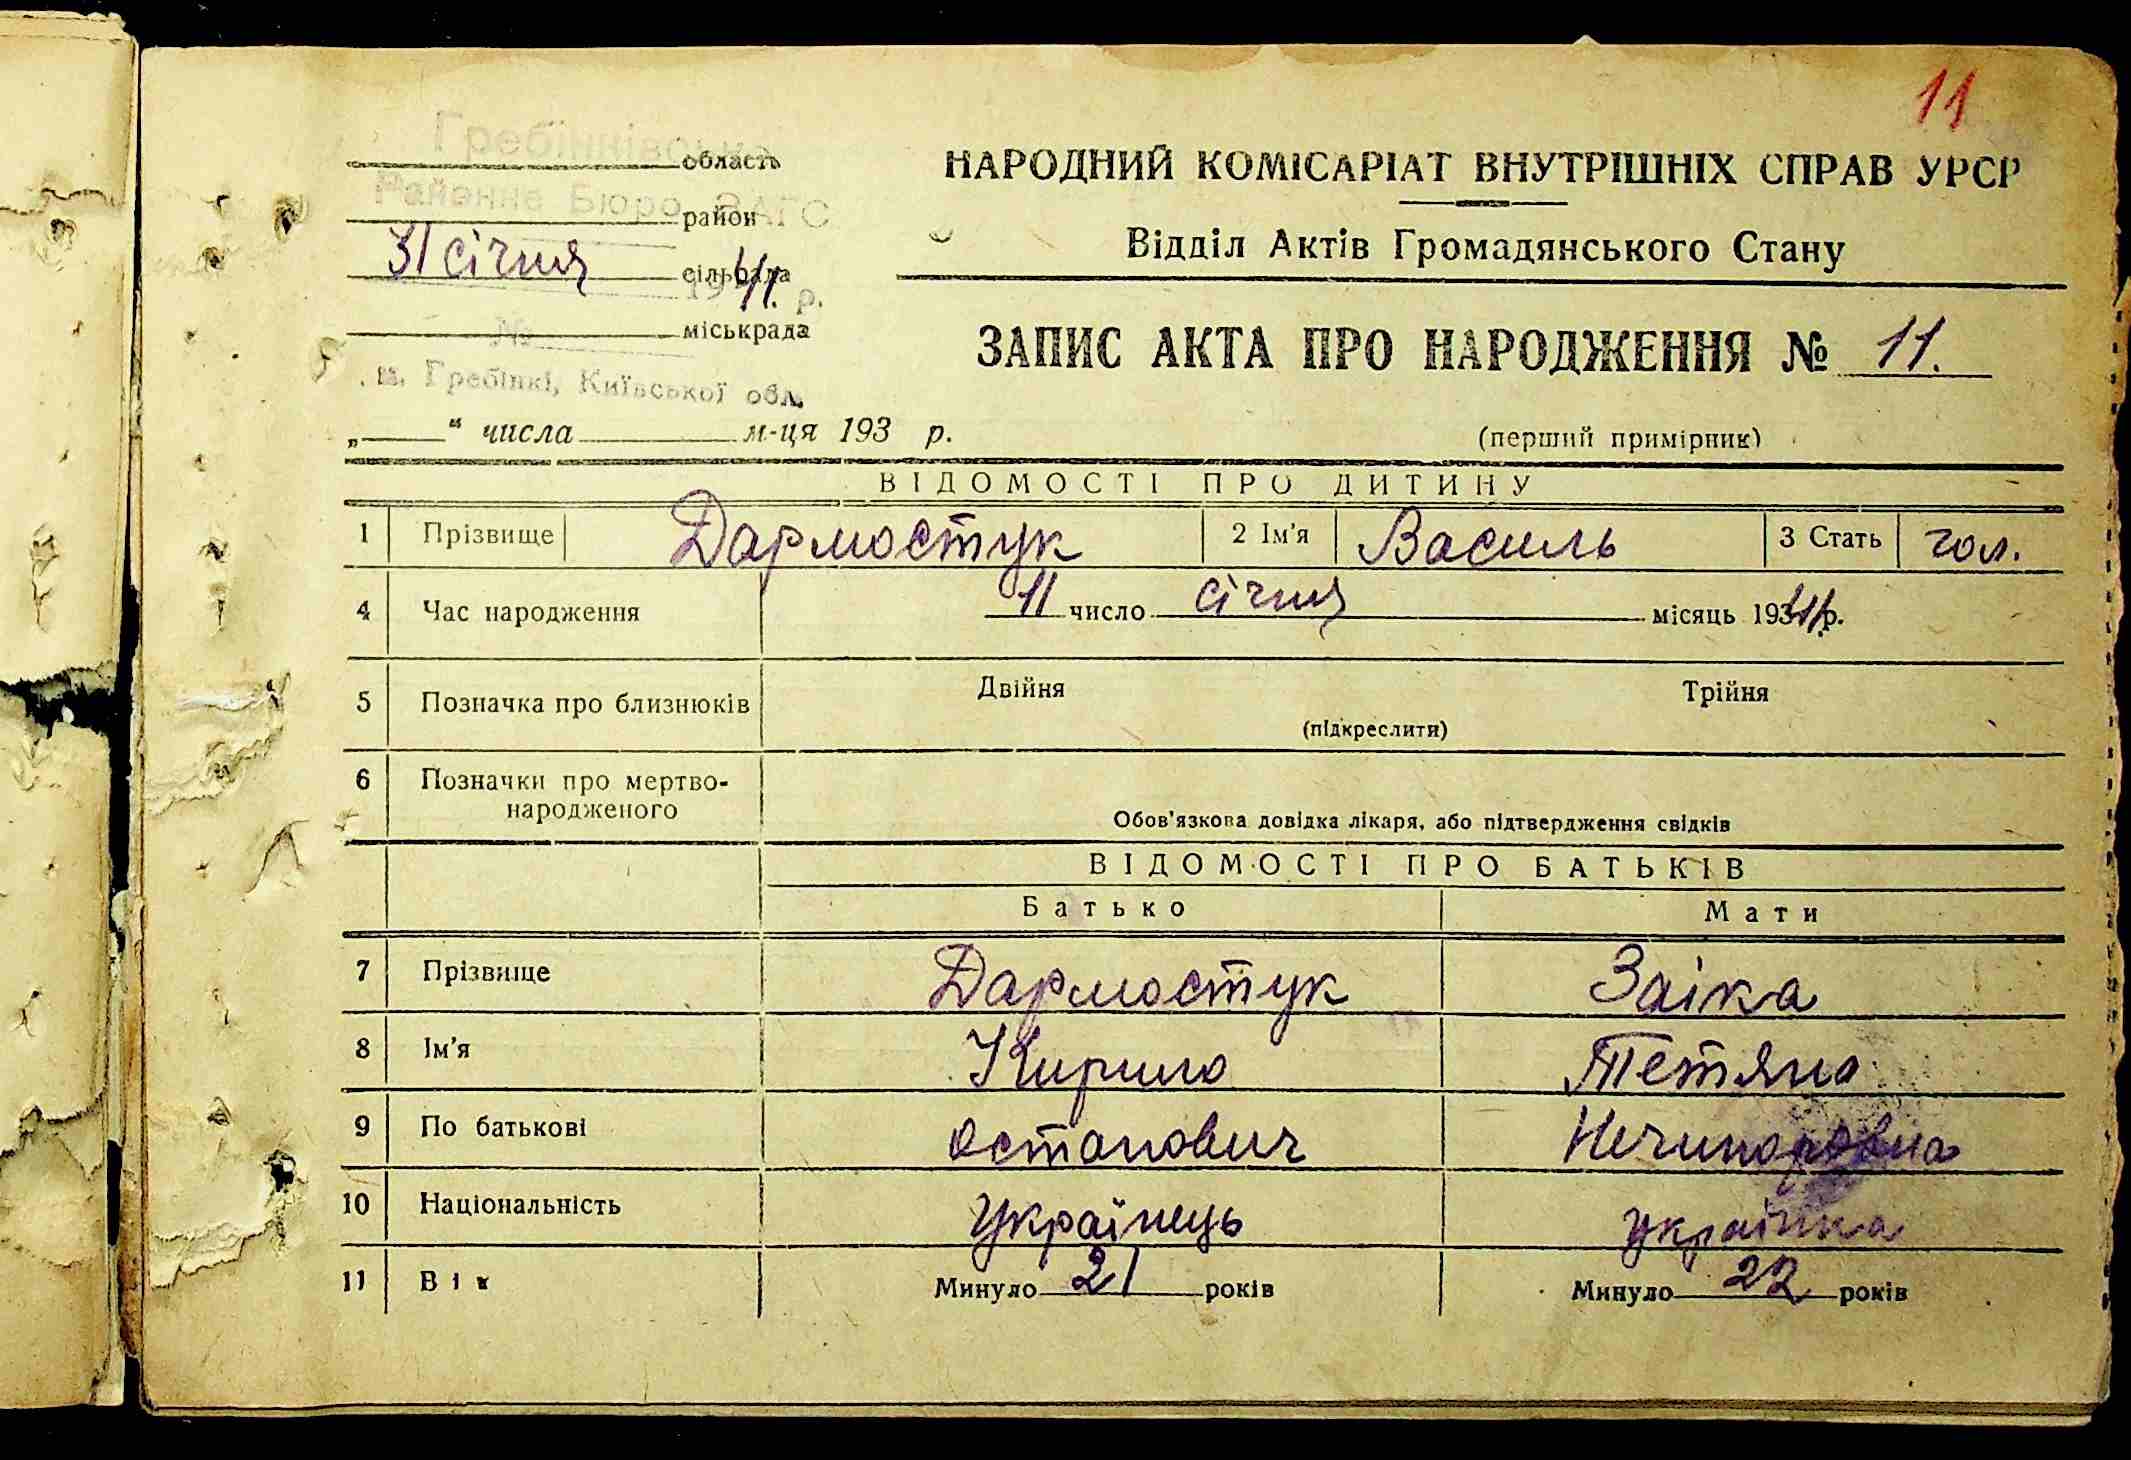 11
Гребінківське
область
Районне Бюро ЗАГС
район
31 січня
сільрада
1941. р.
№
міськрада
м. Гребінкі, Київської обл.
„ “ числа м-ця 193 р.
НАРОДНИЙ КОМІСАРІАТ ВНУТРІШНІХ СПРАВ УРСР
Відділ Актів Громадянського Стану
ЗАПИС АКТА ПРО НАРОДЖЕННЯ № 11.
(перший примірник)
ВІДОМОСТІ ПРО ДИТИНУ
1 Прізвище Дармостук 2 Ім'я Василь 3 Стать чол.
4 Час народження 11 число січня місяць 1941 р.
5 Позначка про близнюків Двійня Трійня
(підкреслити)
6 Позначки про мертво-
народженого
Обов'язкова довідка лікаря, або підтвердження свідків
ВІДОМОСТІ ПРО БАТЬКІВ
Батько Мати
7 Прізвище Дармостук Заіка
8 Ім'я Кирило Тетяна
9 По батькові Остапович Ничипоровна
10 Національність Українець українка
11 Вік Минуло 21 років Минуло 22 років